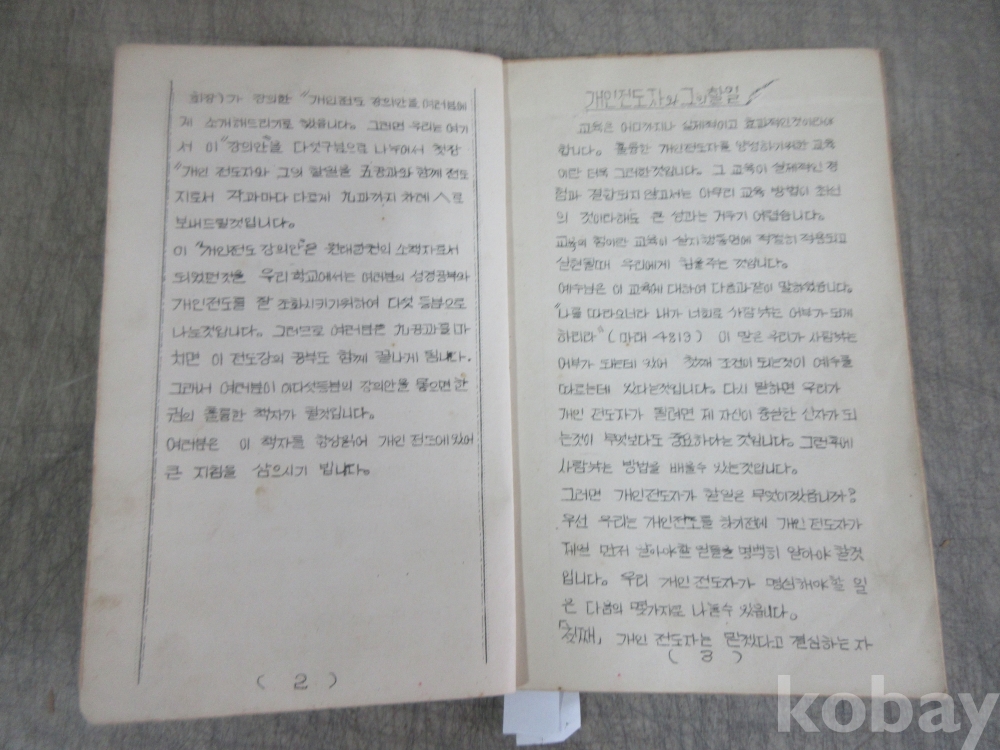 회장)가 강의한 "개인전도 강의안을 여러분에
게 소개해드리기로 했습니다. 그러면 우리는 여기
서 이 "강의안"을 다섯구분으로 나누어서 첫장
"개인 전도자와 그의 할일을 五공과와 함께 전도
지로서 각과마다 다르게 九과까지 차례 로
보내드릴것입니다.
이 "개인전도 강의안"은 한권의 소책자로서
되었던것을 우리 학교에서는 여러분의 성경공부와
개인전도를 잘 조화시키기위하여 다섯 등분으로
나눈것입니다. 그러므로 여러분은 九공과를 마
치면 이 전도강의 공부도 함께 끝나게 됩니다.
그래서 여러분이 이다섯등분의 강의안을 묶으면 한
권의 훌륭한 책자가 될것입니다.
여러분은 이 책자를 항상읽어 개인 전도에있어
큰 지침을 삼으시기 빕니다.
( 2 )
개인전도자와 그의할일
교육은 어디까지나 실제적이고 효과적인것이라야
합니다. 훌륭한 개인전도자를 양성하기위한 교육
이란 더욱 그러한것입니다. 그 교육이 실제적인 경
험과 결합되지 않고서는 아무리 교육 방법이 최선
의 것이라해도 큰 성과는 거두기 어렵습니다.
교육의 힘이란 교육이 실지행동면에 적절히 적용되고
실현될때 우리에게 힘을주는 것입니다.
예수님은 이 교육에 대하여 다음과같이 말하였습니다.
"나를 따라오너라 내가 너희로 사람낚는 어부가 되게
하리라" (마태 4장13) 이 말은 우리가 사람낚는
어부가 되는데 있어 첫째 조건이 되는것이 예수를
따르는데 있다는것입니다. 다시 말하면 우리가
개인 전도자가 될려면 제 자신이 충실한 신자가 되
는것이 무엇보다도 중요하다는 것입니다. 그런후에
사람낚는 방법을 배울수 있는것입니다.
그러면 개인전도자가 할일은 무엇이겠습니까?
우선 우리는 개인전도를 하기전에 개인 전도자가
제일 먼저 알아야할 일들을 명백히 알아야 할것
입니다. 우리 개인 전도자가 명심해야할 일
은 다음의 몇가지로 나눌수 있습니다.
「첫째, 개인 전도자는 믿겠다고 결심하는 자
( 3 )
kobay